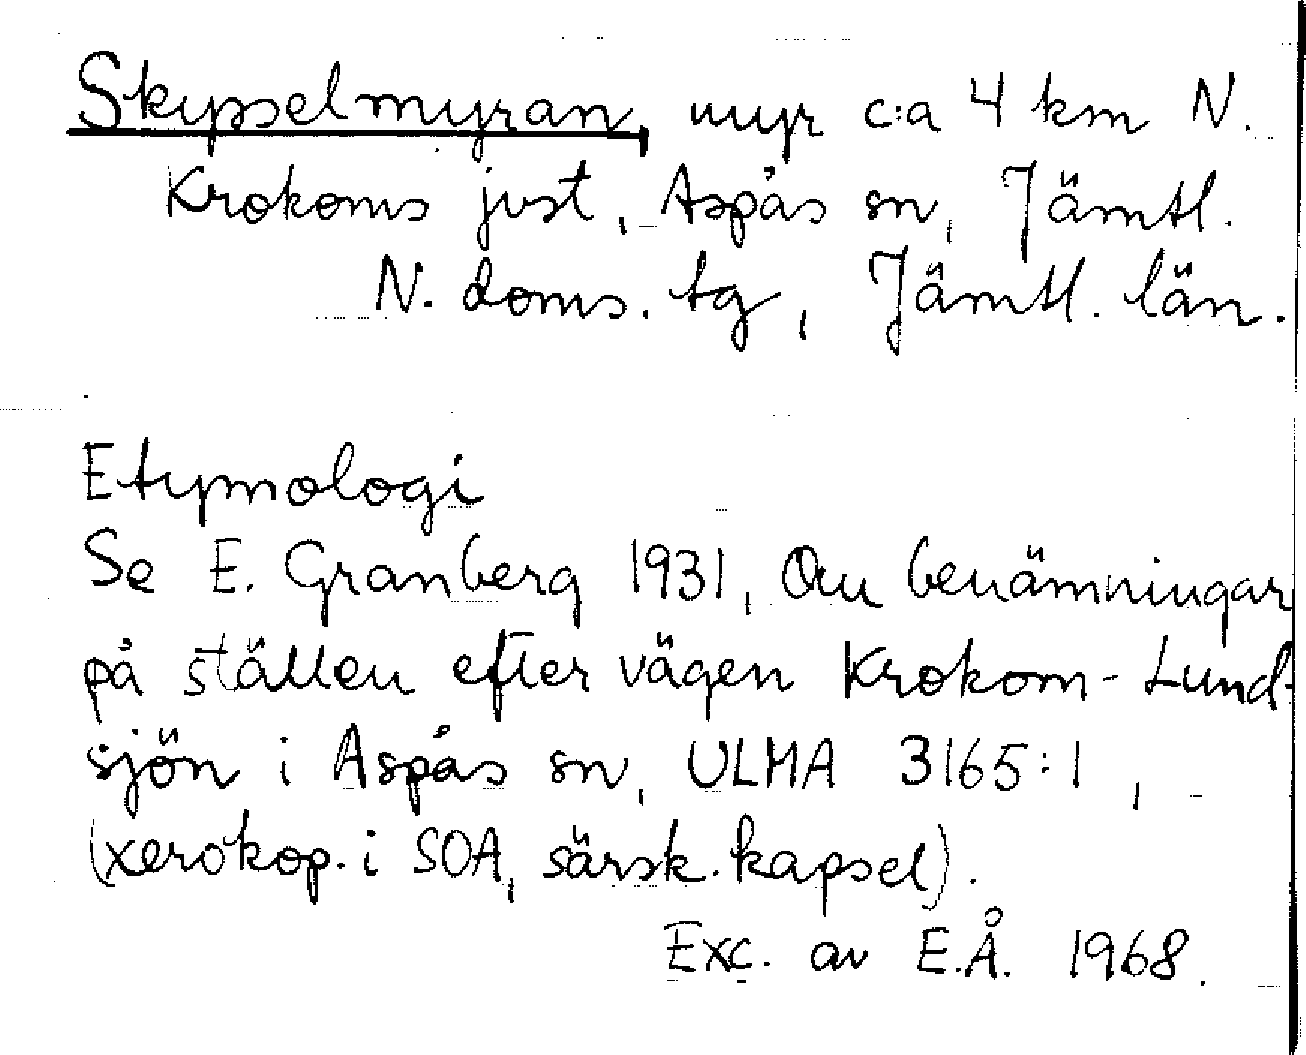 Skypselmyran, myr c:a 4 km N.
Krokoms just., Aspås sn, Jämtl.
N. doms. tg, Jämtl. län.
Etymologi
Se E. Granberg 1931, Om benämningar
på ställen efter vägen Krokom-Lund-
sjön i Aspås sn, ULMA 3165:1,
(xerokop. i SOA, särsk. kapsel).
Exc. av E.Å. 1968.